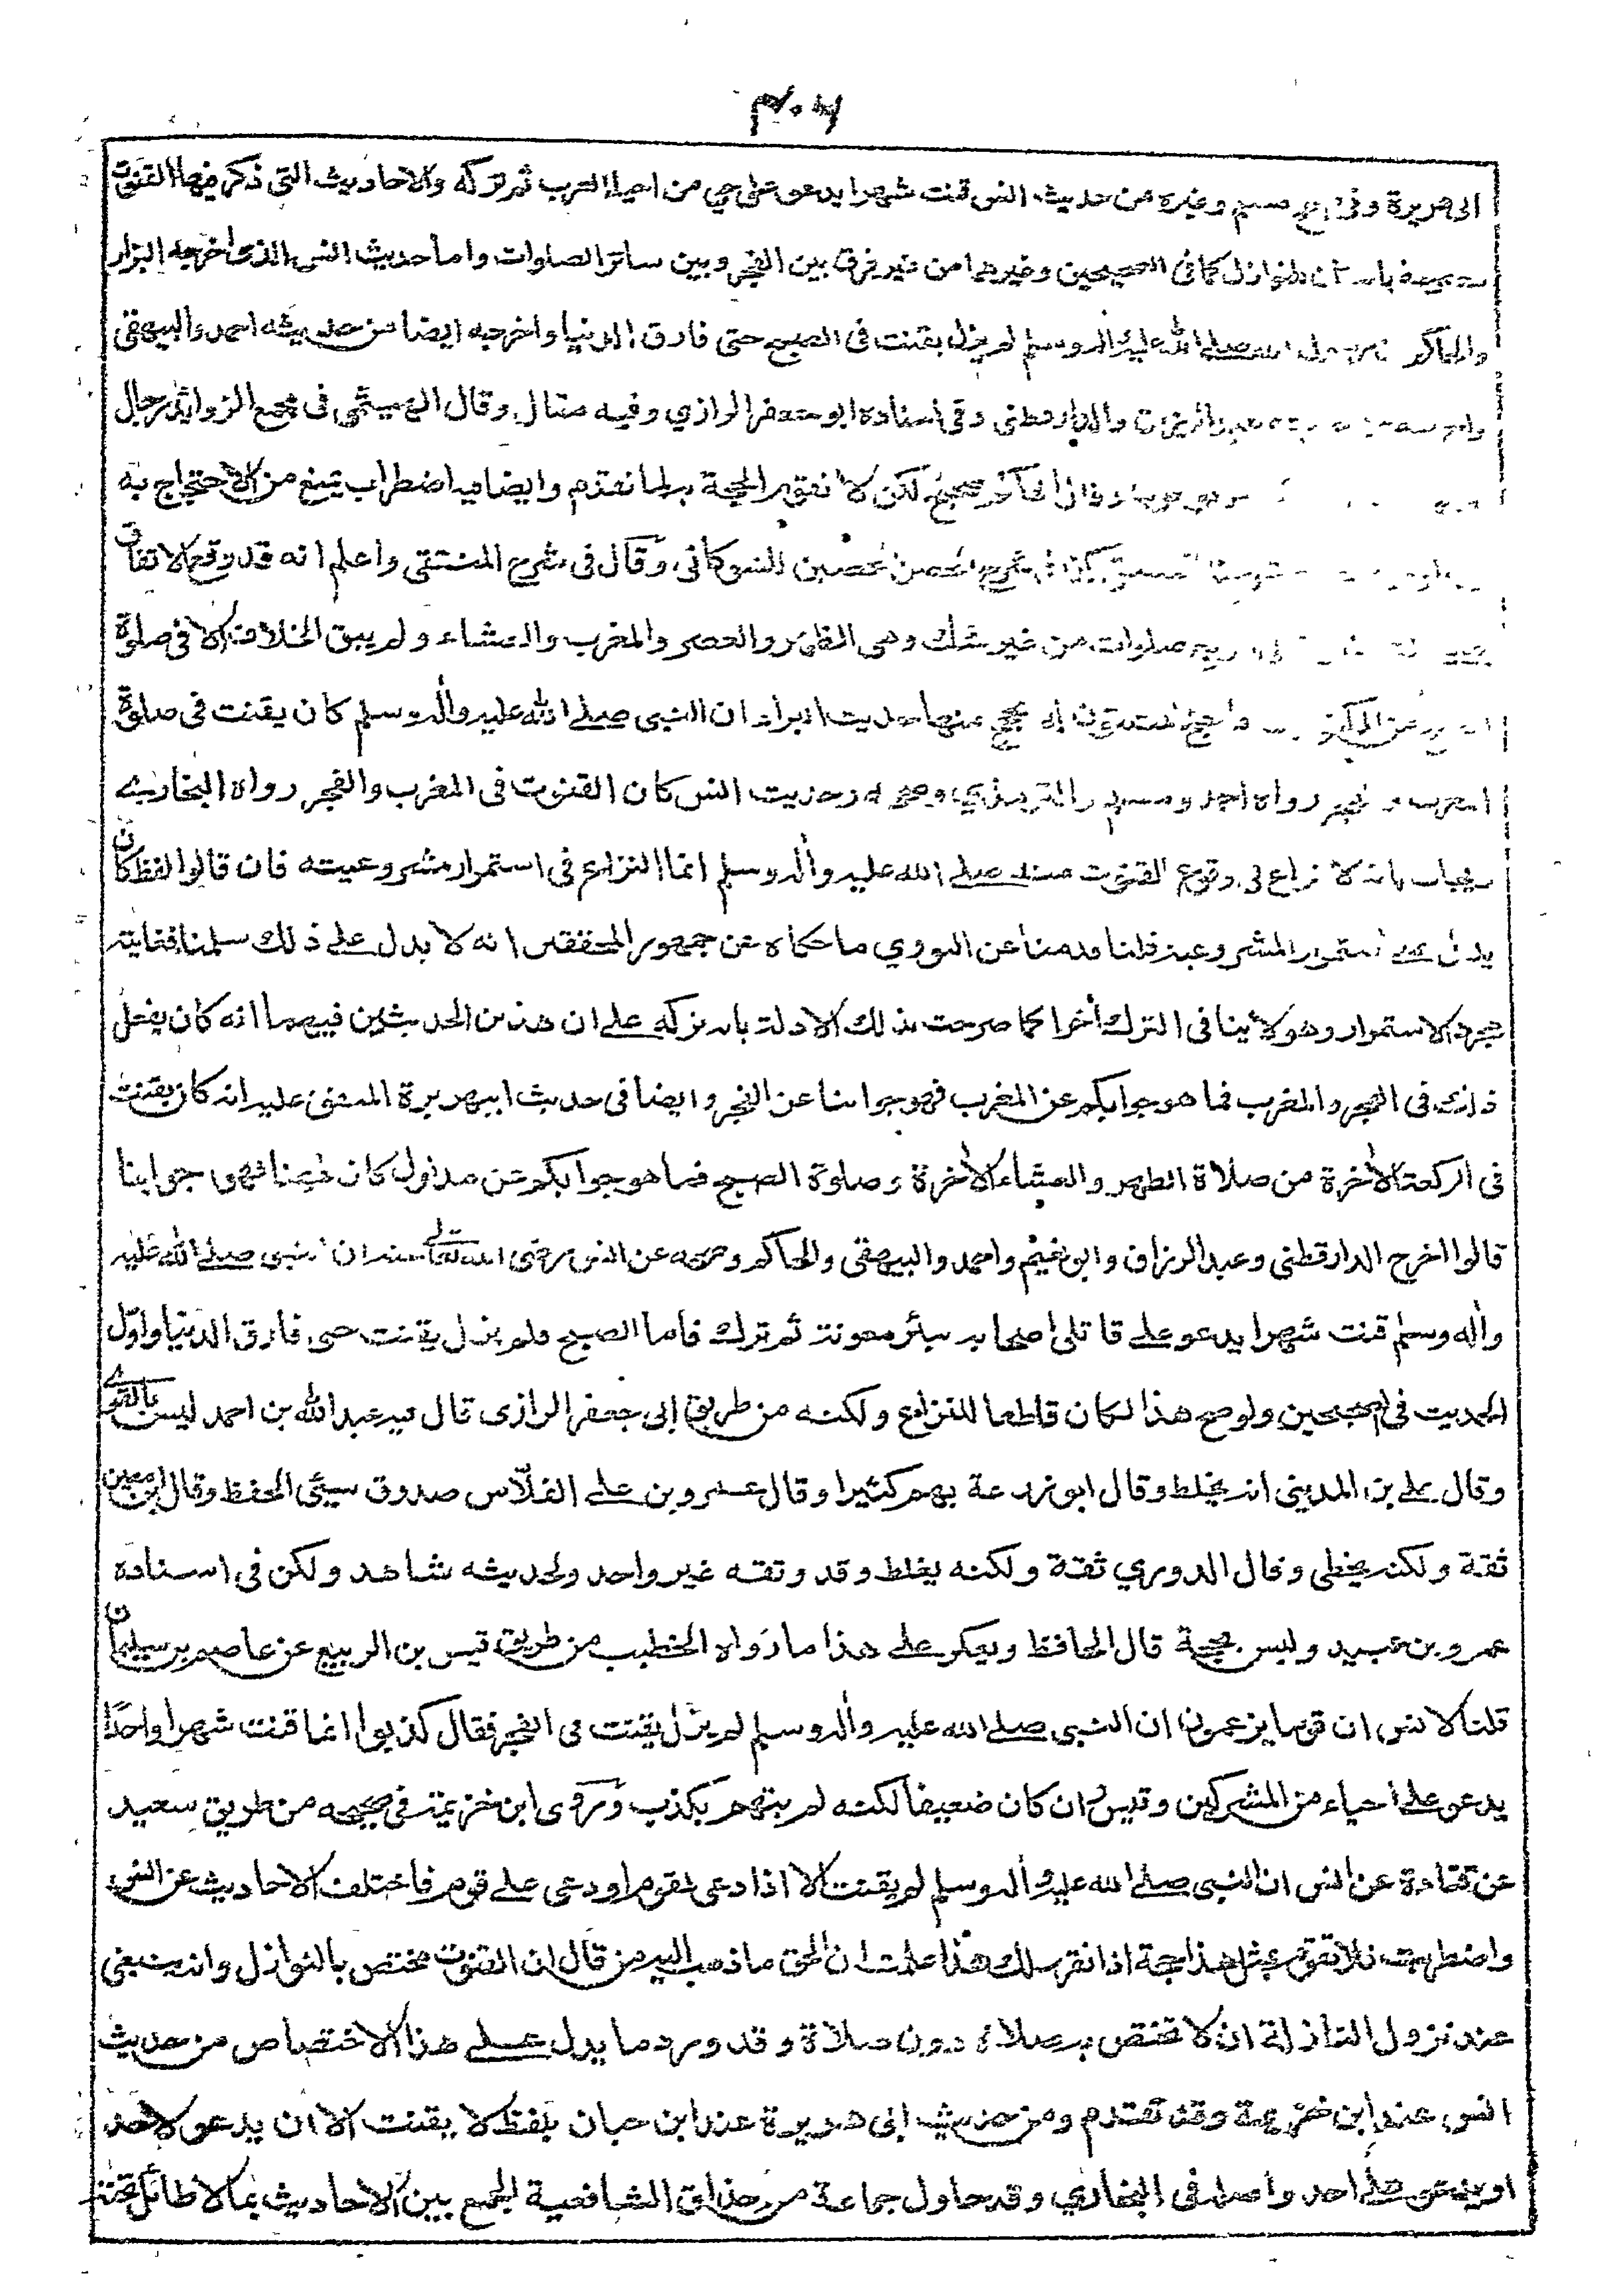 ٣٠٦
ابى هريرة وفى صحيح مسلم وغيره من حديث انس قنت شهرا يدعو على حي من احياء العرب ثم تركه والاحاديث التى ذكر فيها القنوت
للنوازل كما فى الصحيحين وغيرهما من غير فرق بين الفجر وبين سائر الصلوات واما حديث انس الذى اخرجه البزار
والحاكم صلى الله عليه واله وسلم لم يزل يقنت فى الصبح حتى فارق الدنيا واخرجه ايضا من حديثه احمد والبيهقى
والدارقطنى وفى اسناده ابو جعفر الرازي وفيه مقال وقال الهيثمى فى مجمع الزوائد رجال
الحاكم صحيح لكن لا تقوم الحجة به لما تقدم وايضا فيه اضطراب يمنع من الاحتجاج به
كذا فى شرح الحصن الحصين للشوكانى وقال فى شرح المنتقى واعلم انه قد وقع الاتفاق
صلوات من غير شك وهى الظهر والعصر والمغرب والعشاء ولم يبق الخلاف الا فى صلوة
بحجج منها حديث البراء ان النبى صلى الله عليه واله وسلم كان يقنت فى صلوة
المغرب والفجر رواه احمد ومسلم والترمذي وصححه وحديث انس كان القنوت فى المغرب والفجر رواه البخارى
ويجاب بانه لا نزاع فى وقوع القنوت منه صلى الله عليه واله وسلم انما النزاع فى استمرار مشروعيته فان قالوا لفظ كان
يدل على استمرار المشروعية قلنا قدمنا عن النووي ما حكاه عن جمهور المحققين انه لا يدل على ذلك سلمنا فغايته
مجرد الاستمرار وهو لا ينافى الترك أخرا كما صرحت بذلك الادلة بانه تركه على ان هذين الحديثين فيهما انه كان يفعل
ذلك فى الفجر والمغرب فما هو جوابكم عن المغرب فهو جوابنا عن الفجر وايضا فى حديث ابيهريرة المتفق عليه انه كان يقنت
فى الركعة الأخرة من صلاة الظهر والعشاء الأخرة وصلوة الصبح فما هو جوابكم عن مدلول كان ههنا فهو جوابنا
قالوا اخرج الدارقطنى وعبد الرزاق وابو نعيم واحمد والبيهقى والحاكم وصححه عن انس رضى الله تعالى عنه ان النبى صلى الله عليه
واله وسلم قنت شهرا يدعو على قاتلى اصحابه ببئر معونة ثم ترك فاما الصبح فلم يزل يقنت حتى فارق الدنيا واول
الحديث فى الصحيحين ولو صح هذا لكان قاطعا للنزاع ولكنه من طريق ابى جعفر الرازى قال فيه عبد الله بن احمد ليس بالقوى
وقال على بن المدينى انه يخلط وقال ابو زرعة يهم كثيرا وقال عمرو بن على الفلّاس صدوق سيئ الحفظ وقال ابن معين
ثقة ولكنه يخطى وقال الدوري ثقة ولكنه يغلط وقد وثقه غير واحد ولحديثه شاهد ولكن فى اسناده
عمرو بن عبيد وليس بحجة قال الحافظ ويعكر على هذا ما رواه الخطيب من طريق قيس بن الربيع عن عاصم بن سليمان
قلنا لانس ان قوما يزعمون ان النبى صلى الله عليه واله وسلم لم يزل يقنت فى الفجر فقال كذبوا انما قنت شهرا واحدا
يدعو على احياء من المشركين وقيس ان كان ضعيفا لكنه لم يتهم بكذب وروى ابن خزيمة فى صحيحه من طريق سعيد
عن قتادة عن انس ان النبى صلى الله عليه واله وسلم لم يقنت الا اذا دعى لقوم او دعى على قوم فاختلف الاحاديث عن انس
واضطربت فلا تقوم بمثل هذا حجة اذا تقرر لك هذا علمت ان الحق ما ذهب اليه من قال ان القنوت مختص بالنوازل وانه ينبغى
عند نزول النازلة ان لا تختص به صلاة دون صلاة وقد ورد ما يدل على هذا الاختصاص من حديث
انس عند ابن خزيمة وقد تقدم ومن حديث ابى هريرة عند ابن حبان بلفظ لا يقنت الا ان يدعو لاحد
او يدعو على احد واصله فى البخاري وقد حاول جماعة من حذاق الشافعية الجمع بين الاحاديث بما لا طائل تحته